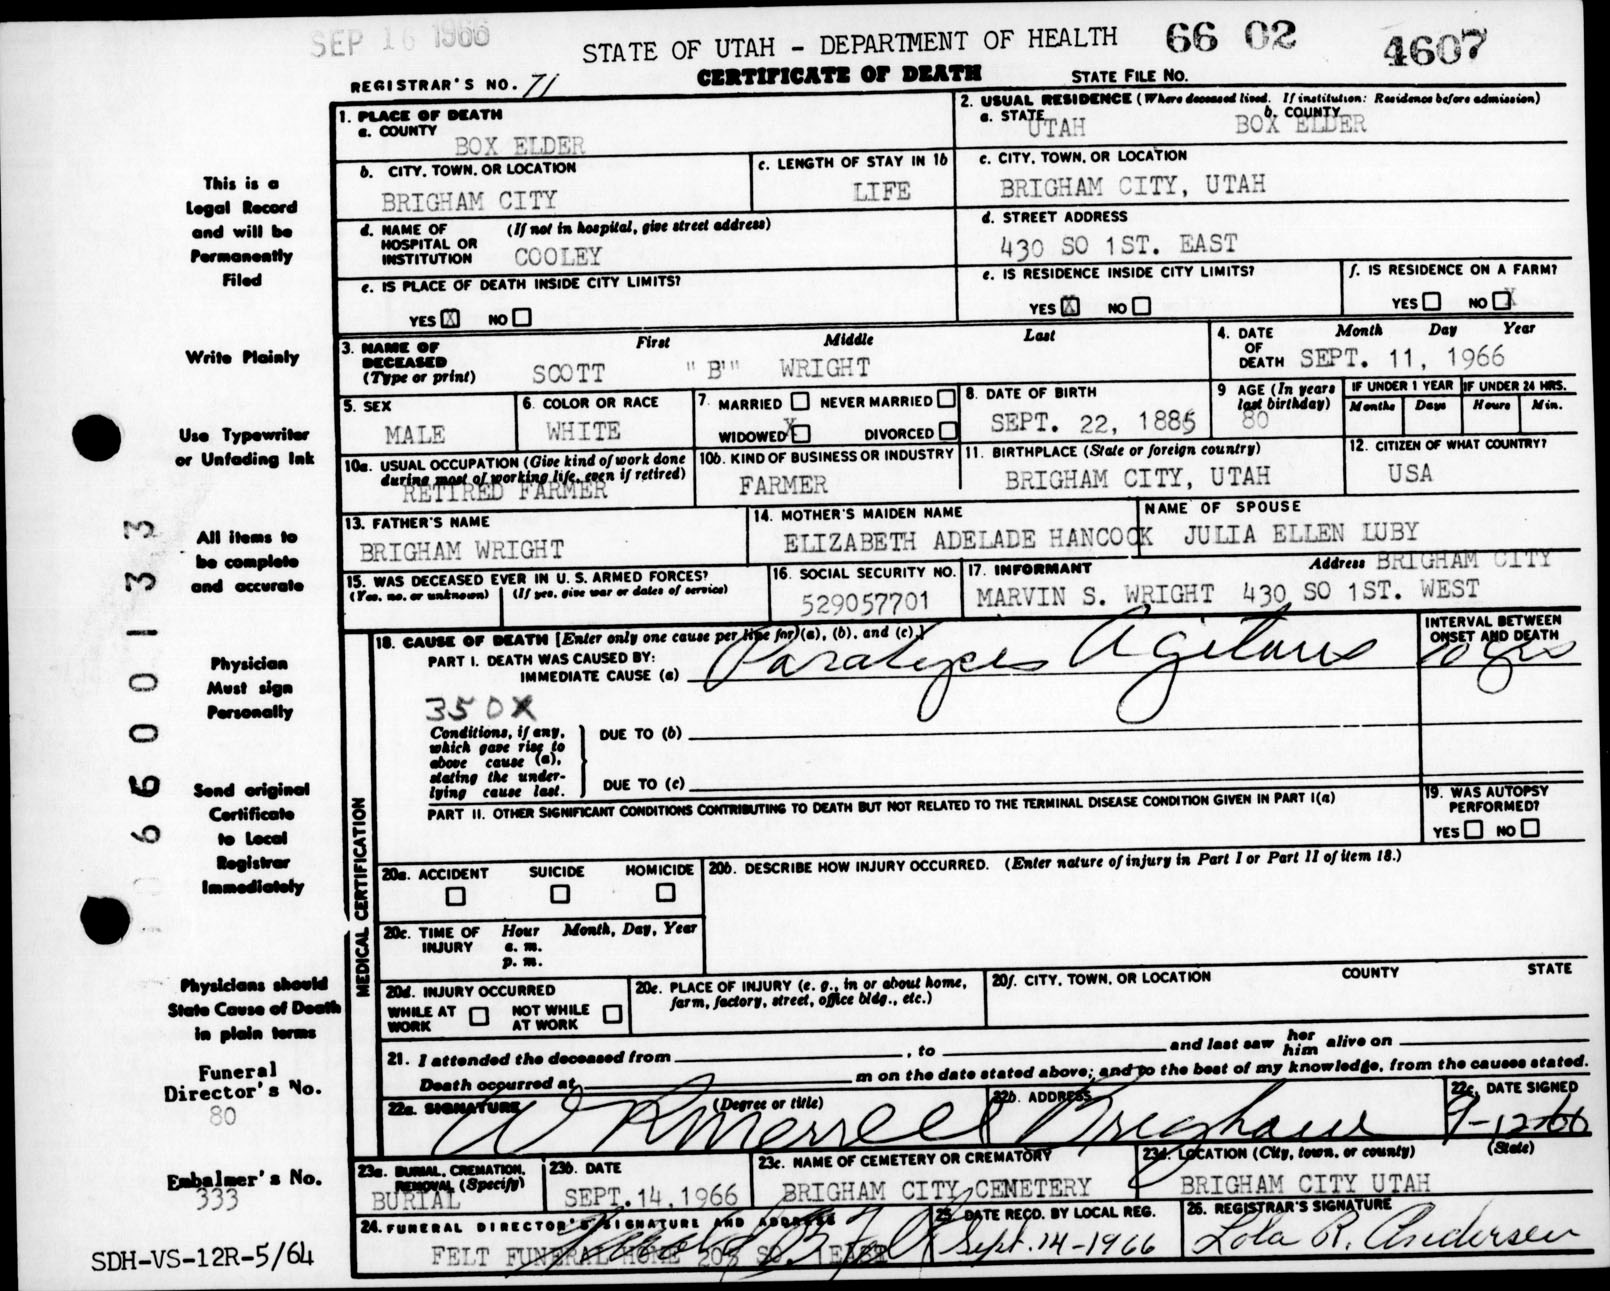 SEP 16 1966
STATE OF UTAH - DEPARTMENT OF HEALTH 66 02 4607
REGISTRAR'S NO. 71 CERTIFICATE OF DEATH STATE FILE NO.
1. PLACE OF DEATH
a. COUNTY
BOX ELDER
2. USUAL RESIDENCE (Where deceased lived. If institution: Residence before admission)
a. STATE b. COUNTY
UTAH BOX ELDER
b. CITY, TOWN, OR LOCATION
BRIGHAM CITY
c. LENGTH OF STAY IN 1b
LIFE
c. CITY, TOWN, OR LOCATION
BRIGHAM CITY, UTAH
d. NAME OF (If not in hospital, give street address)
HOSPITAL OR
INSTITUTION COOLEY
d. STREET ADDRESS
430 SO 1ST. EAST
e. IS PLACE OF DEATH INSIDE CITY LIMITS?
YES X NO
e. IS RESIDENCE INSIDE CITY LIMITS?
YES X NO
f. IS RESIDENCE ON A FARM?
YES NO X
3. NAME OF First Middle Last
DECEASED
(Type or print) SCOTT "B" WRIGHT
4. DATE Month Day Year
OF
DEATH SEPT. 11, 1966
5. SEX
MALE
6. COLOR OR RACE
WHITE
7. MARRIED NEVER MARRIED
WIDOWED X DIVORCED
8. DATE OF BIRTH
SEPT. 22, 1885
9 AGE (In years
last birthday)
80
IF UNDER 1 YEAR IF UNDER 24 HRS.
Months Days Hours Min.
10a. USUAL OCCUPATION (Give kind of work done
during most of working life, even if retired)
RETIRED FARMER
10b. KIND OF BUSINESS OR INDUSTRY
FARMER
11. BIRTHPLACE (State or foreign country)
BRIGHAM CITY, UTAH
12. CITIZEN OF WHAT COUNTRY?
USA
13. FATHER'S NAME
BRIGHAM WRIGHT
14. MOTHER'S MAIDEN NAME
ELIZABETH ADELADE HANCOCK
NAME OF SPOUSE
JULIA ELLEN LUBY
15. WAS DECEASED EVER IN U. S. ARMED FORCES?
(Yes, no, or unknown) (If yes, give war or dates of service)
16. SOCIAL SECURITY NO.
529057701
17. INFORMANT Address BRIGHAM CITY
MARVIN S. WRIGHT 430 SO 1ST. WEST
18. CAUSE OF DEATH [Enter only one cause per line for (a), (b), and (c).]
PART I. DEATH WAS CAUSED BY:
IMMEDIATE CAUSE (a) Paralysis Agitans
INTERVAL BETWEEN
ONSET AND DEATH
10 yrs
350X
Conditions, if any,
which gave rise to
above cause (a),
stating the under-
lying cause last.
DUE TO (b)
DUE TO (c)
PART II. OTHER SIGNIFICANT CONDITIONS CONTRIBUTING TO DEATH BUT NOT RELATED TO THE TERMINAL DISEASE CONDITION GIVEN IN PART I(a)
19. WAS AUTOPSY
PERFORMED?
YES NO
MEDICAL CERTIFICATION
20a. ACCIDENT SUICIDE HOMICIDE
20b. DESCRIBE HOW INJURY OCCURRED. (Enter nature of injury in Part I or Part II of item 18.)
20c. TIME OF Hour Month, Day, Year
INJURY a. m.
p. m.
20d. INJURY OCCURRED
WHILE AT NOT WHILE
WORK AT WORK
20e. PLACE OF INJURY (e. g., in or about home,
farm, factory, street, office bldg., etc.)
20f. CITY, TOWN, OR LOCATION COUNTY STATE
21. I attended the deceased from , to and last saw her him alive on
Death occurred at m on the date stated above; and to the best of my knowledge, from the causes stated.
22a. SIGNATURE (Degree or title)
W R Merrell
22b. ADDRESS
Brigham
22c. DATE SIGNED
9-12-66
23a. BURIAL, CREMATION,
REMOVAL (Specify)
BURIAL
23b. DATE
SEPT. 14, 1966
23c. NAME OF CEMETERY OR CREMATORY
BRIGHAM CITY CEMETERY
23d. LOCATION (City, town, or county) (State)
BRIGHAM CITY UTAH
24. FUNERAL DIRECTOR'S SIGNATURE AND ADDRESS
FELT FUNERAL HOME 205 SO. 1EAST
25. DATE RECD. BY LOCAL REG.
Sept. 14-1966
26. REGISTRAR'S SIGNATURE
Lola R. Andersen
This is a
Legal Record
and will be
Permanently
Filed
Write Plainly
Use Typewriter
or Unfading Ink
All items to
be complete
and accurate
Physician
Must sign
Personally
Send original
Certificate
to Local
Registrar
Immediately
Physicians should
State Cause of Death
in plain terms
Funeral
Director's No.
80
Embalmer's No.
333
SDH-VS-12R-5/64
06600133